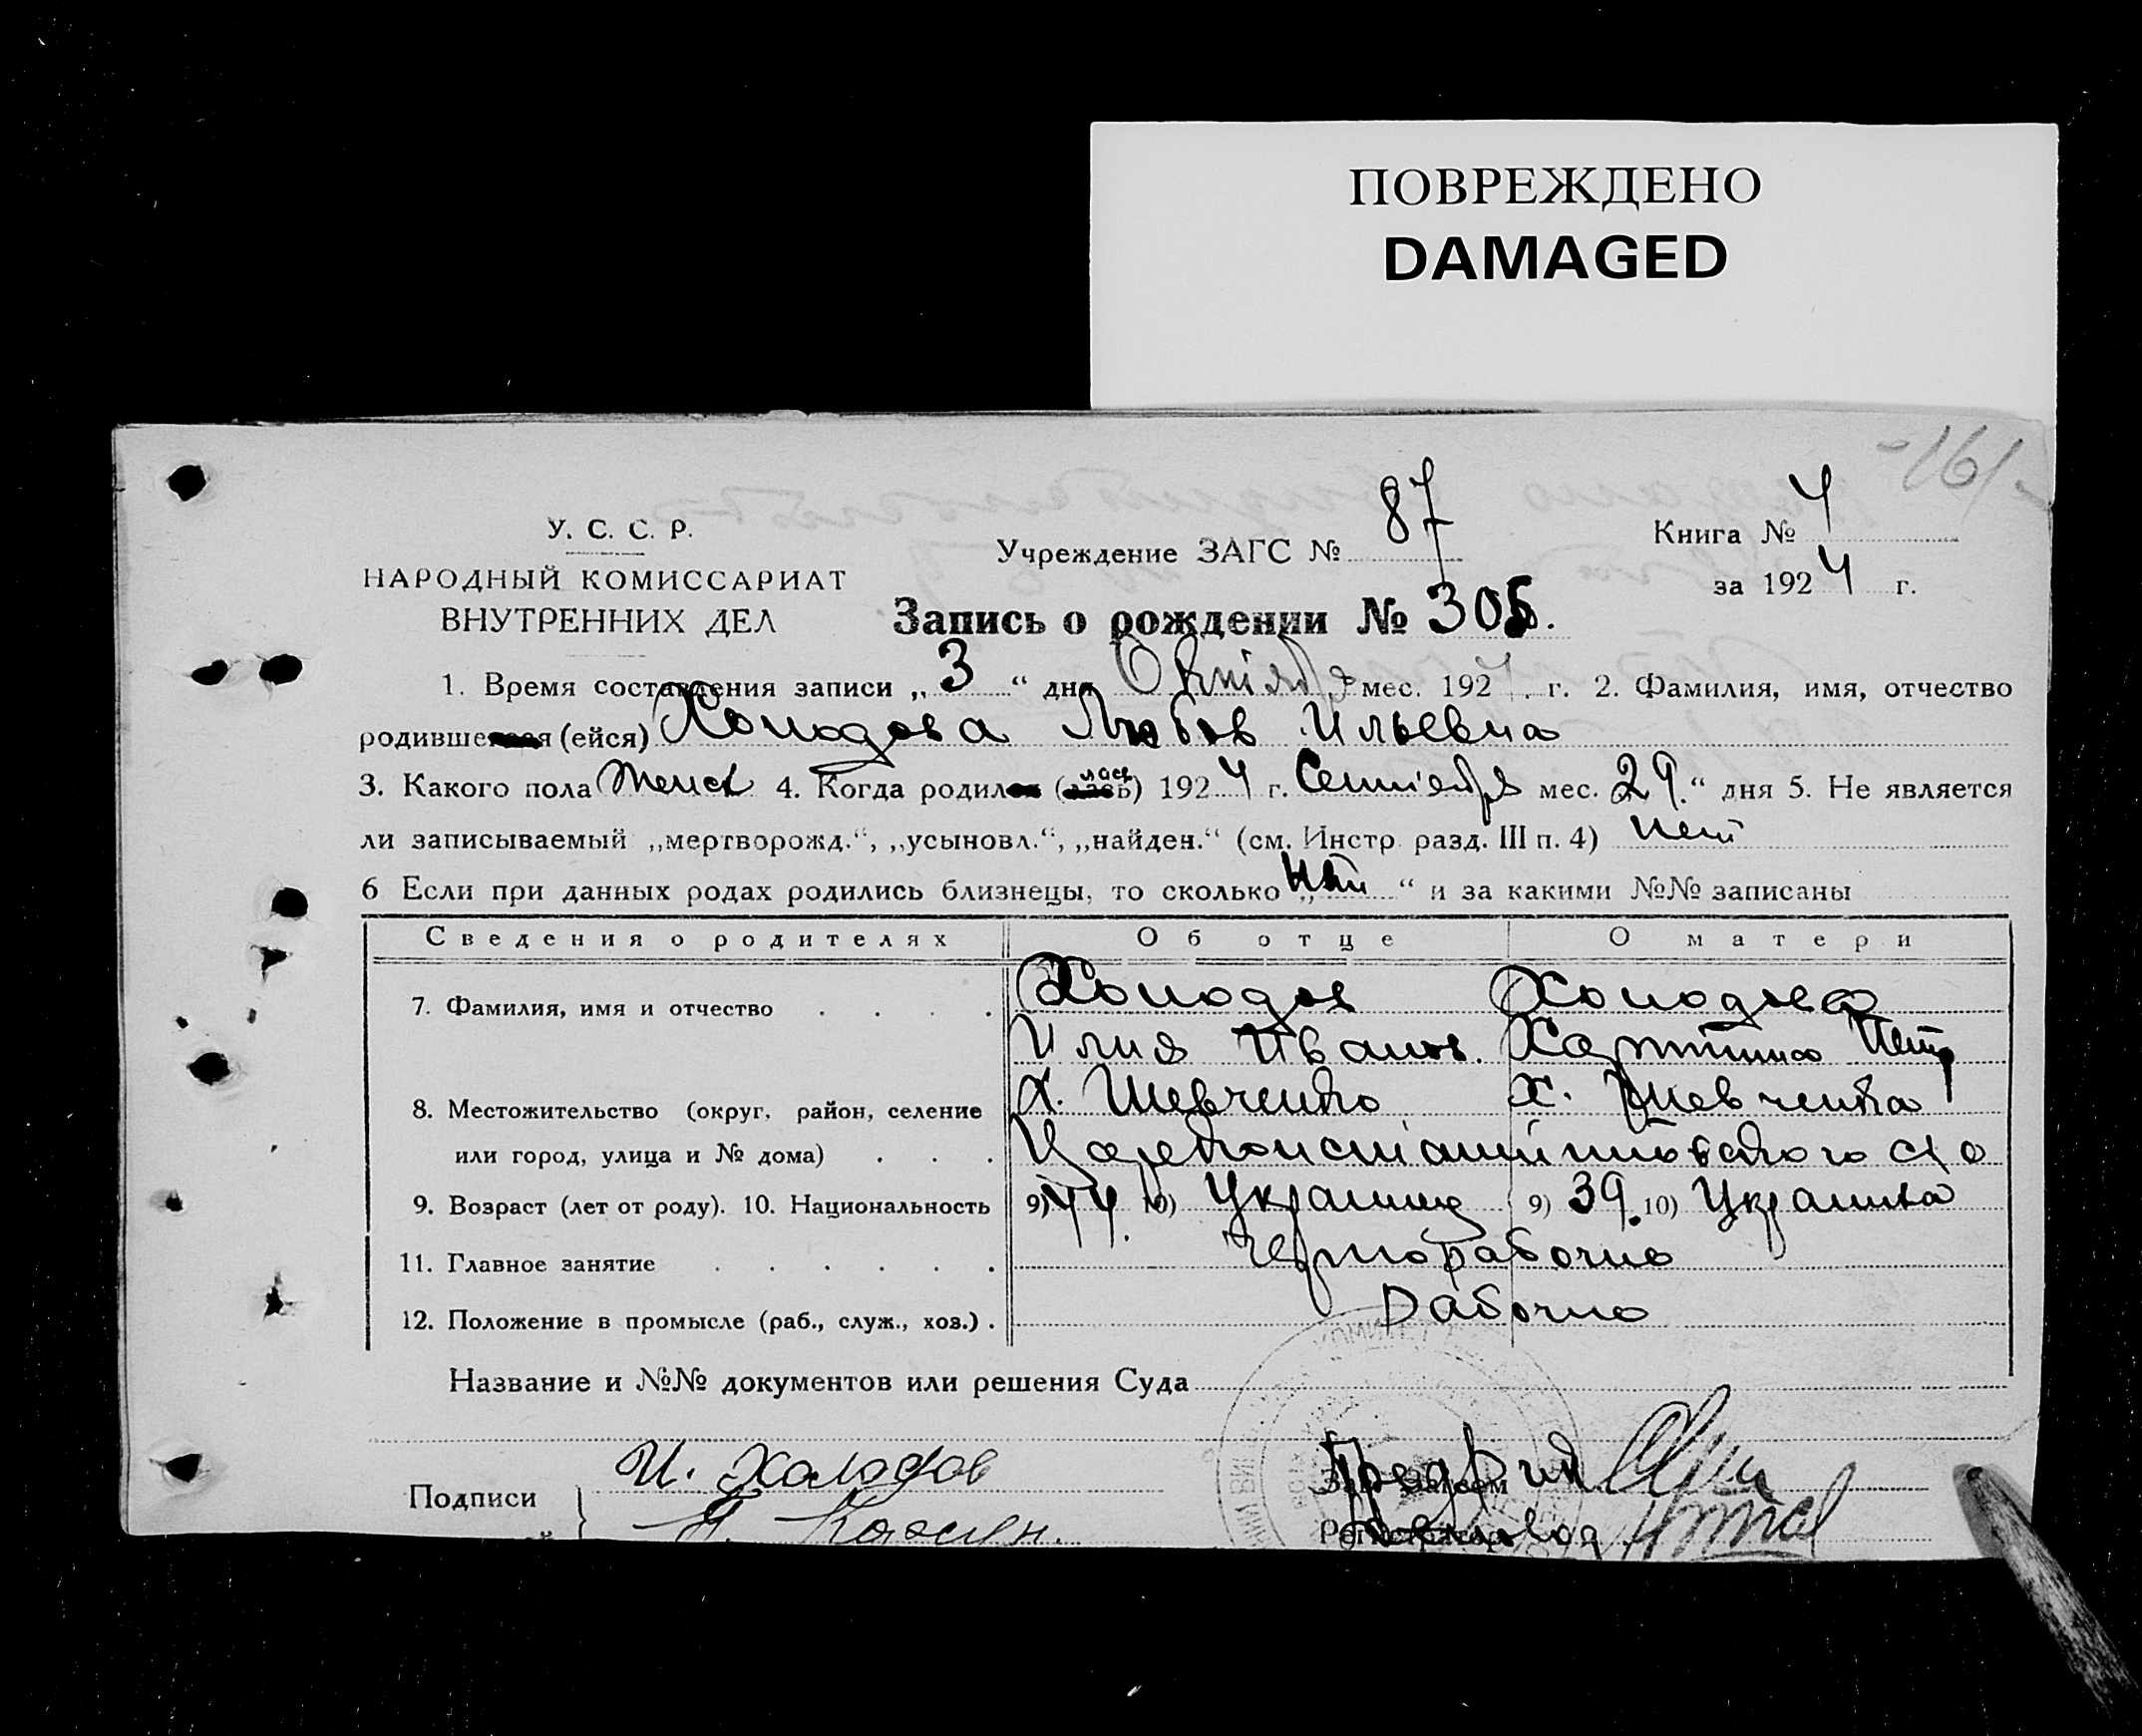 ПОВРЕЖДЕНО
DAMAGED
-161-
У. С. С. Р.
НАРОДНЫЙ КОМИССАРИАТ
ВНУТРЕННИХ ДЕЛ
Учреждение ЗАГС № 87
Книга № 4
за 1924 г.
Запись о рождении № 305.
1. Время составления записи „3“ дня Октября мес. 1924 г. 2. Фамилия, имя, отчество
родивше (ейся) Холодова Любов Ильевна
3. Какого пола женск 4. Когда родил (лась) 1924 г. Сентября мес. 29 “ дня 5. Не является
ли записываемый „мертворожд.“, „усыновл.“, „найден.“ (см. Инстр. разд. III п. 4) нет
6 Если при данных родах родились близнецы, то сколько „нет“ и за какими №№ записаны
Сведения о родителях Об отце О матери
7. Фамилия, имя и отчество Холодов Холодова
Илия Иванов. Харитина Петр
8. Местожительство (округ, район, селение х. Шевченко х. Шевченка
или город, улица и № дома) Цареконстантиновского
9. Возраст (лет от роду). 10. Национальность 9) 44. 10) Украинец 9) 39. 10) Украинка
11. Главное занятие Чернорабочие
12. Положение в промысле (раб., служ., хоз.) Рабочие
Название и №№ документов или решения Суда
Подписи И. Холодов
Зав. Загсом
Регистратор